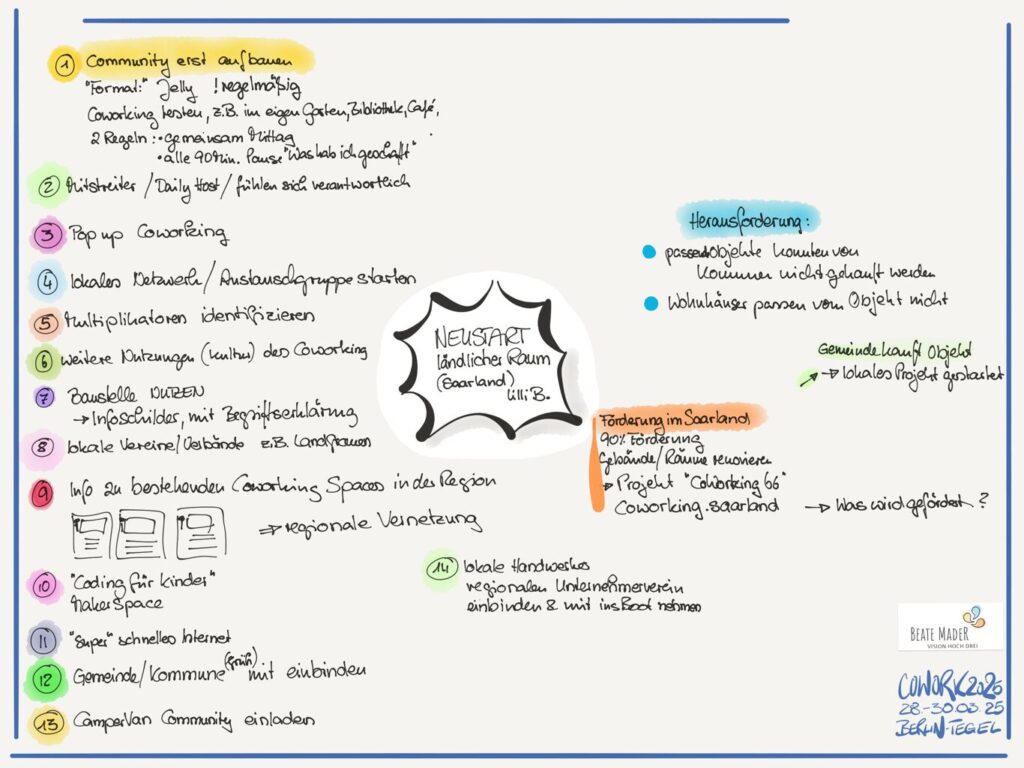 1 Community erst aufbauen
"Format:" Jelly ! regelmäßig
Coworking testen, z.B. im eigen Garten, Bibliothek, Café,
2 Regeln: • gemeinsam Mittag
• alle 90 Min. Pause "Was hab ich geschafft"
2 Mitstreiter / Daily Host / fühlen sich verantwortlich
3 Pop up Coworking
4 lokales Netzwerk / Austauschgruppe starten
5 Multiplikatoren identifizieren
6 weitere Nutzungen (Kultur) des Coworking
7 Baustelle NUTZEN
→ Infoschilder, mit Begriffserklärung
8 lokale Vereine/Verbände z.B. Landfrauen
9 Info zu bestehenden Coworking Spaces in der Region
⇒ regionale Vernetzung
10 "Coding für Kinder"
MakerSpace
11 "super" schnelles Internet
12 Gemeinde/Kommune (früh) mit einbinden
13 CamperVan Community einladen
NEUSTART
ländlicher Raum
(Saarland)
Lilli B.
14 lokale Handwerker
regionalen Unternehmerverein
einbinden & mit ins Boot nehmen
Herausforderung:
• passend Objekte konnten von
Kommune nicht gekauft werden
• Wohnhäuser passen vom Objekt nicht
Gemeinde kauft Objekt
→ lokales Projekt gestartet
Förderung im Saarland
90% Förderung
Gebäude/Räume renovieren
→ Projekt "Coworking 66"
Coworking.saarland → Was wird gefördert?
BEATE MADER
VISION HOCH DREI
COWORK2025
28.-30.03.25
BERLIN-TEGEL